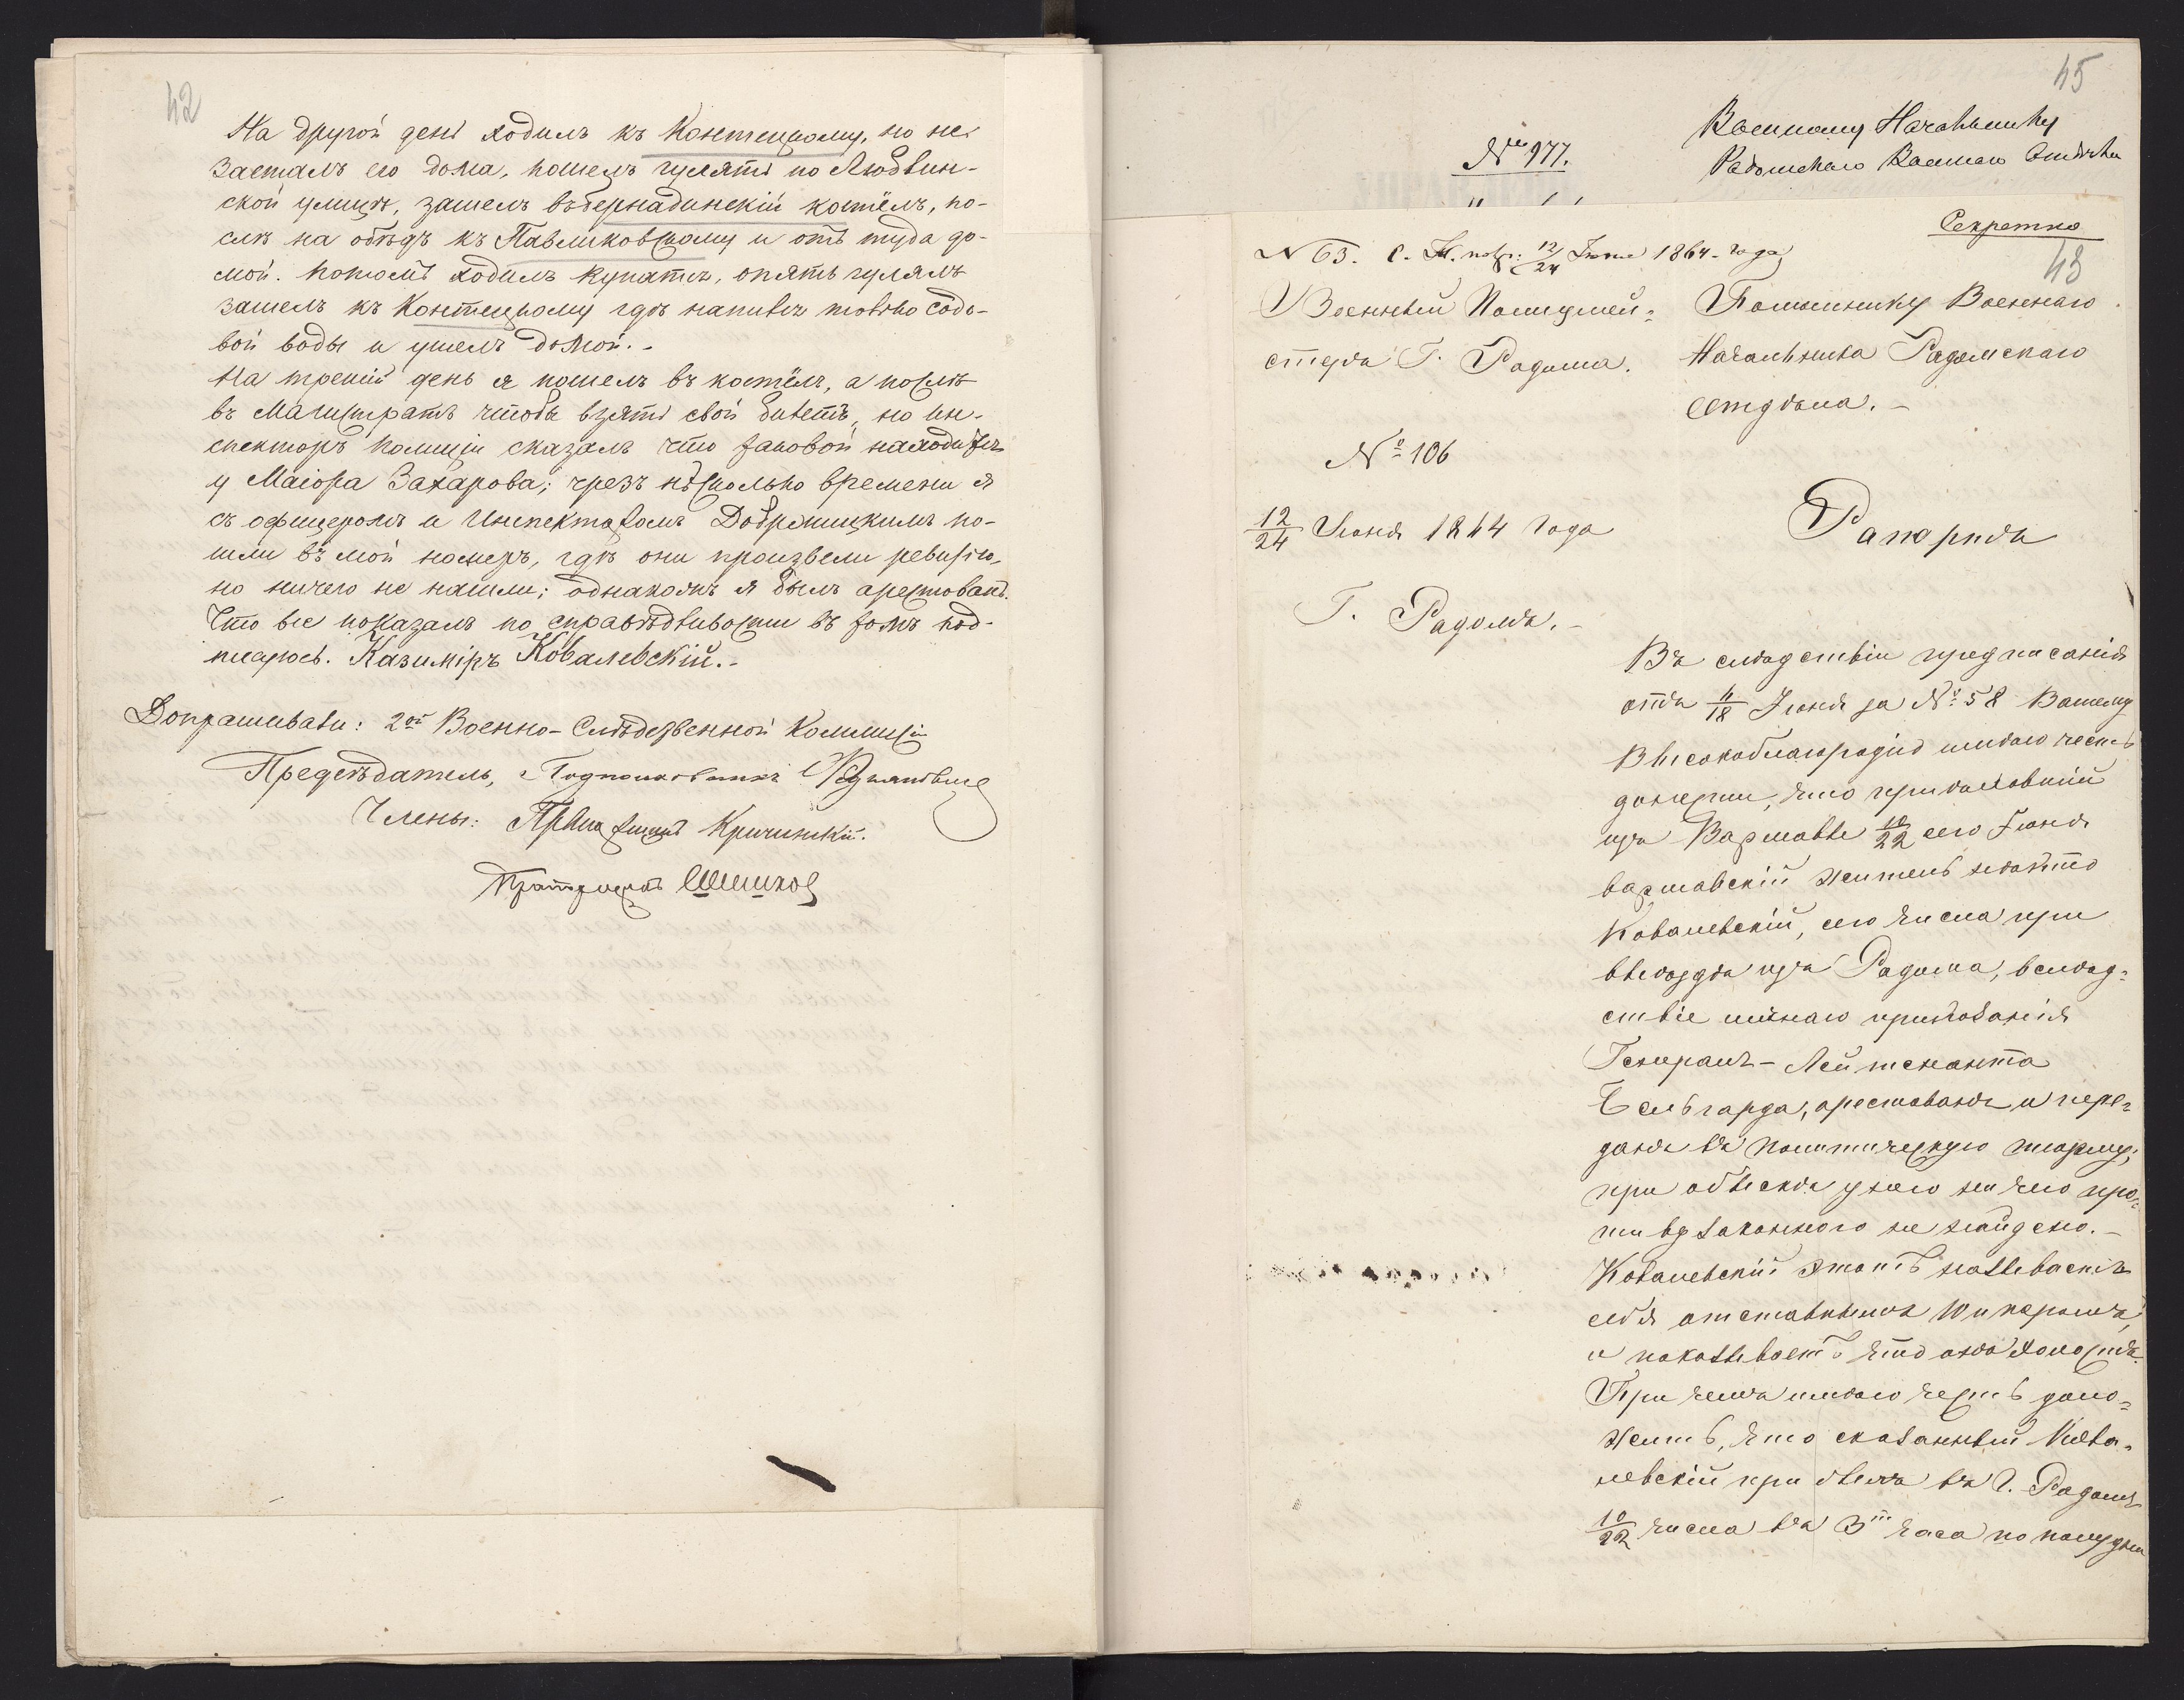 42
На другой день ходилъ къ Контецкому, но не
засталъ его дома, пошелъ гулять по Людвин-
ской улицѣ, зашелъ въ бернадинскій костёлъ, по-
слѣ на обѣдъ къ Павликовскому и отъ туда до-
мой. Потомъ ходилъ купатся, опять гулялъ
зашелъ къ Контецкому гдѣ напився товько содо-
вой воды и ушелъ домой.-
На третій день я пошелъ въ костёлъ, а послѣ
въ Магистратъ чтобы взять свой билетъ, но ин-
спекторъ полиціи сказалъ что таковой находится
у Маіора Захарова; чрезъ нѣсколько времени я
съ офицеромъ и Инспекторомъ Добржицкимъ по-
шли въ мой номеръ, гдѣ они произвели ревизію,
но ничего не нашли; однакожъ я былъ арестованъ.
Что все показалъ по справѣдливости въ томъ под-
писуюсь. Казиміръ Ковалевскій.-
Допрашивали: 2ой Военно-Слѣдственной Коммисіи
Предсѣдатель, Подполковникъ
Члены: Кричинскій.
Шишков
45
№ 977.
Военному Начальнику
Радомскаго Военнаго Отдѣла
Секретно
N 63. 12/24 Іюня 1864 года
43
Военный Полицмей=
стеръ Г. Радома.
Помощнику Военнаго
Начальника Радомскаго
Отдѣла.-
№ 106
12/24 Іюня 1864 года
Рапортъ
Г. Радомъ.-
Въ слѣдствіи предписанія
отъ 6/18 Іюня за № 58 Вашему
Высокоблагородію имѣю честь
донести, что пріѣхавшій
изъ Варшавы 10/22 сего Іюня
варшавскій житель нѣкто
Ковалевскій, сего числа при
выѣздѣ изъ Радома, вслѣд=
ствіе личнаго приказанія
Генералъ-Лейтенанта
Бельгарда, арестованъ и пере=
данъ въ политическую тюрму;
при обыскѣ у него ни чего про=
тивузаконного не найдено.-
Ковалевскій этотъ называетъ
себя отставнымъ Юнкеромъ,
и показываетъ что онъ холостъ.
При чемъ имѣю честь доло=
жить, что сказанный Кова=
левскій при былъ въ Г. Радомъ
10/22 числа въ 3 часа по полудни